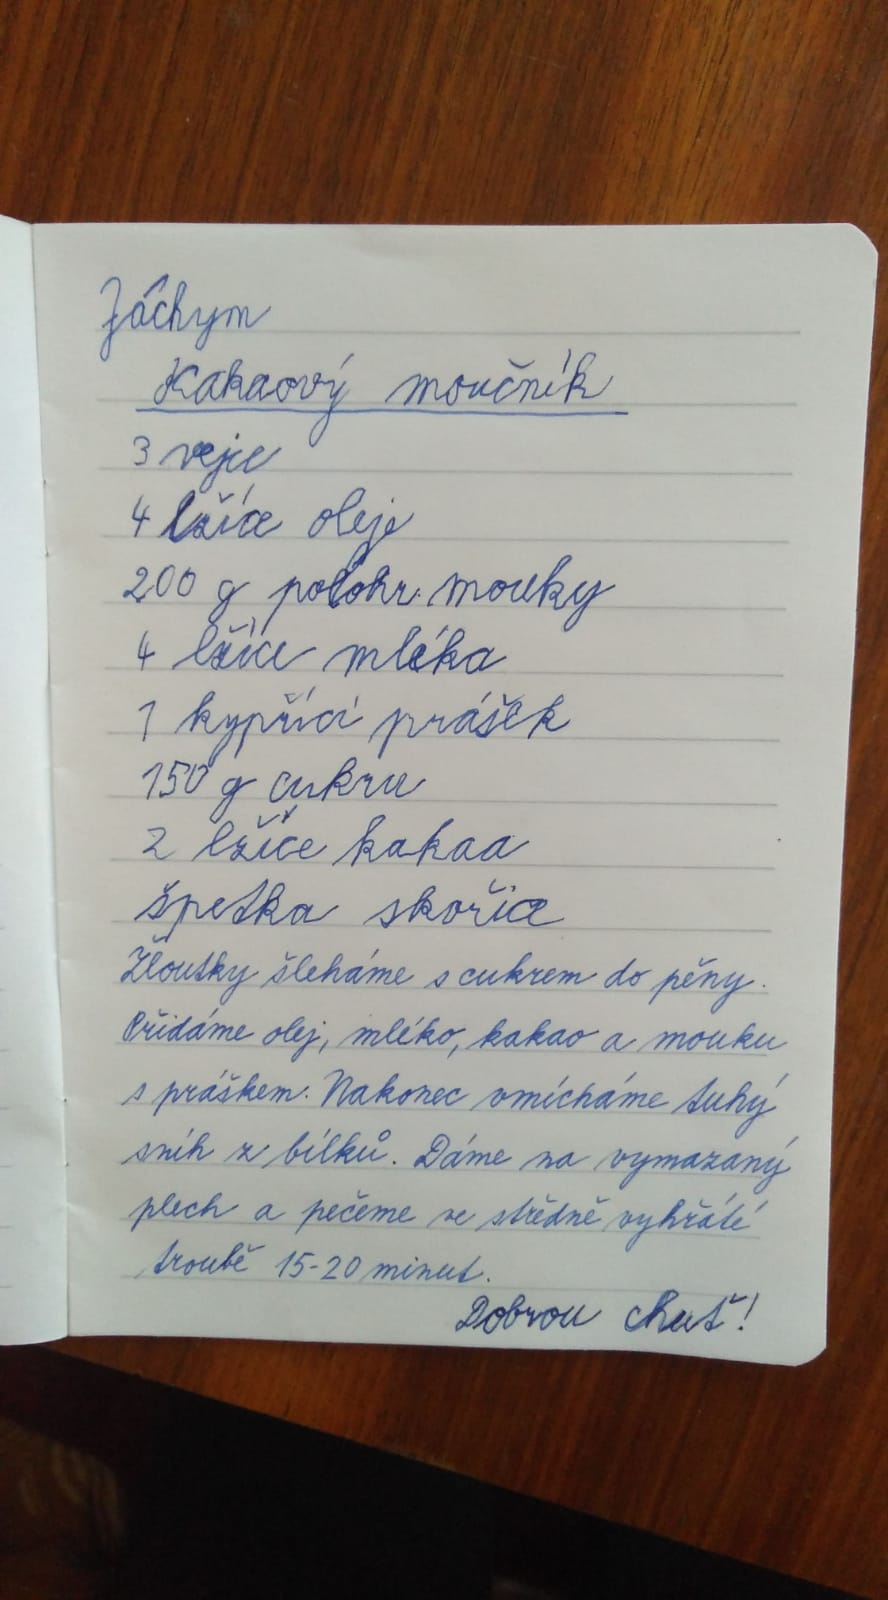 Jáchym
Kakaový moučník
3 vejce
4 lžíce oleje
200 g polohr. mouky
4 lžíce mléka
1 kypřící prášek
150 g cukru
2 lžíce kakaa
špetka skořice
Žloutky šleháme s cukrem do pěny.
Přidáme olej, mléko, kakao a mouku
s práškem. Nakonec vmícháme tuhý
sníh z bílků. Dáme na vymazaný
plech a pečeme ve středně vyhřáté
troubě 15-20 minut.
Dobrou chuť!